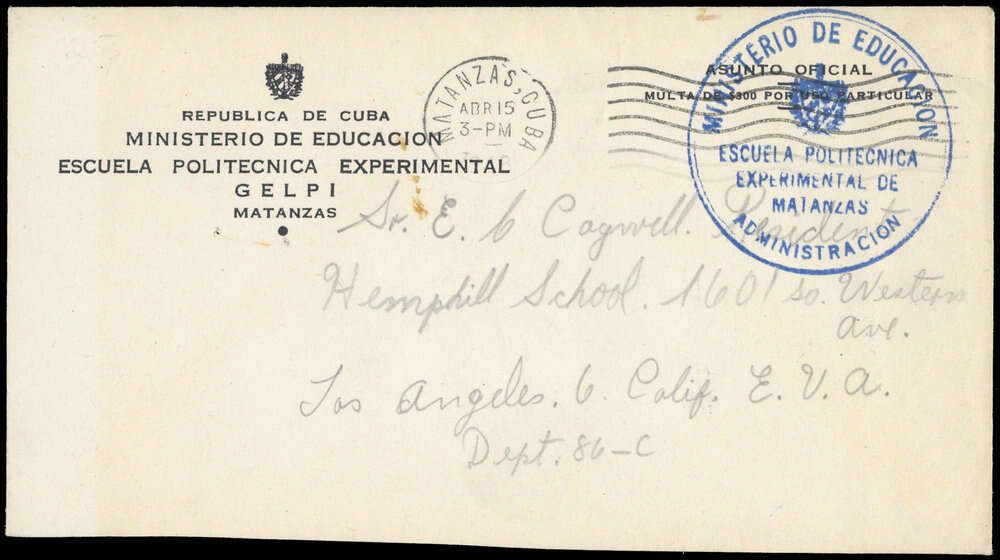 REPUBLICA DE CUBA
MINISTERIO DE EDUCACION
ESCUELA POLITECNICA EXPERIMENTAL
GELPI
MATANZAS
MATANZAS, CUBA
ABR 15
3-PM
ASUNTO OFICIAL
MULTA DE $300 POR USO PARTICULAR
MINISTERIO DE EDUCACION
ESCUELA POLITECNICA
EXPERIMENTAL DE
MATANZAS
ADMINISTRACION
Sr. E. C Cogwell. President.
Hemphill School. 1601 so. Western
ave.
Los Angeles. 6. Calif. E. U. A.
Dept. 86-C